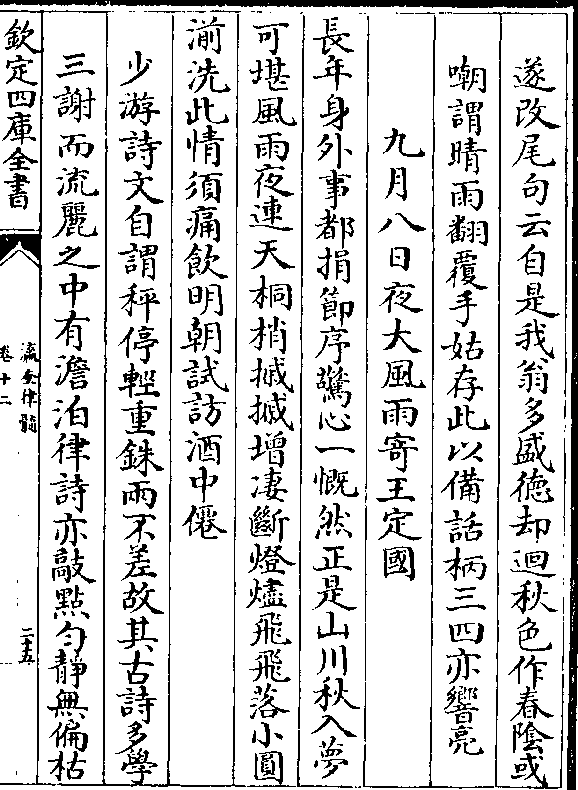 遂改尾句云自是我翁多盛德却迴秋色作春隂或
嘲謂晴雨翻覆手姑存此以備話柄三四亦響亮
九月八日夜大風雨寄王定國
長年身外事都捐節序驚心一慨然正是山川秋入夢
可堪風雨夜連天桐梢摵摵增凄斷燈燼飛飛落小圓
湔洗此情須痛飲明朝試訪酒中僊
少游詩文自謂秤停輕重銖兩不差故其古詩多學
三謝而流麗之中有澹泊律詩亦敲㸃匀靜無偏枯
欽定四庫全書
瀛奎律髓
卷十二
二十五